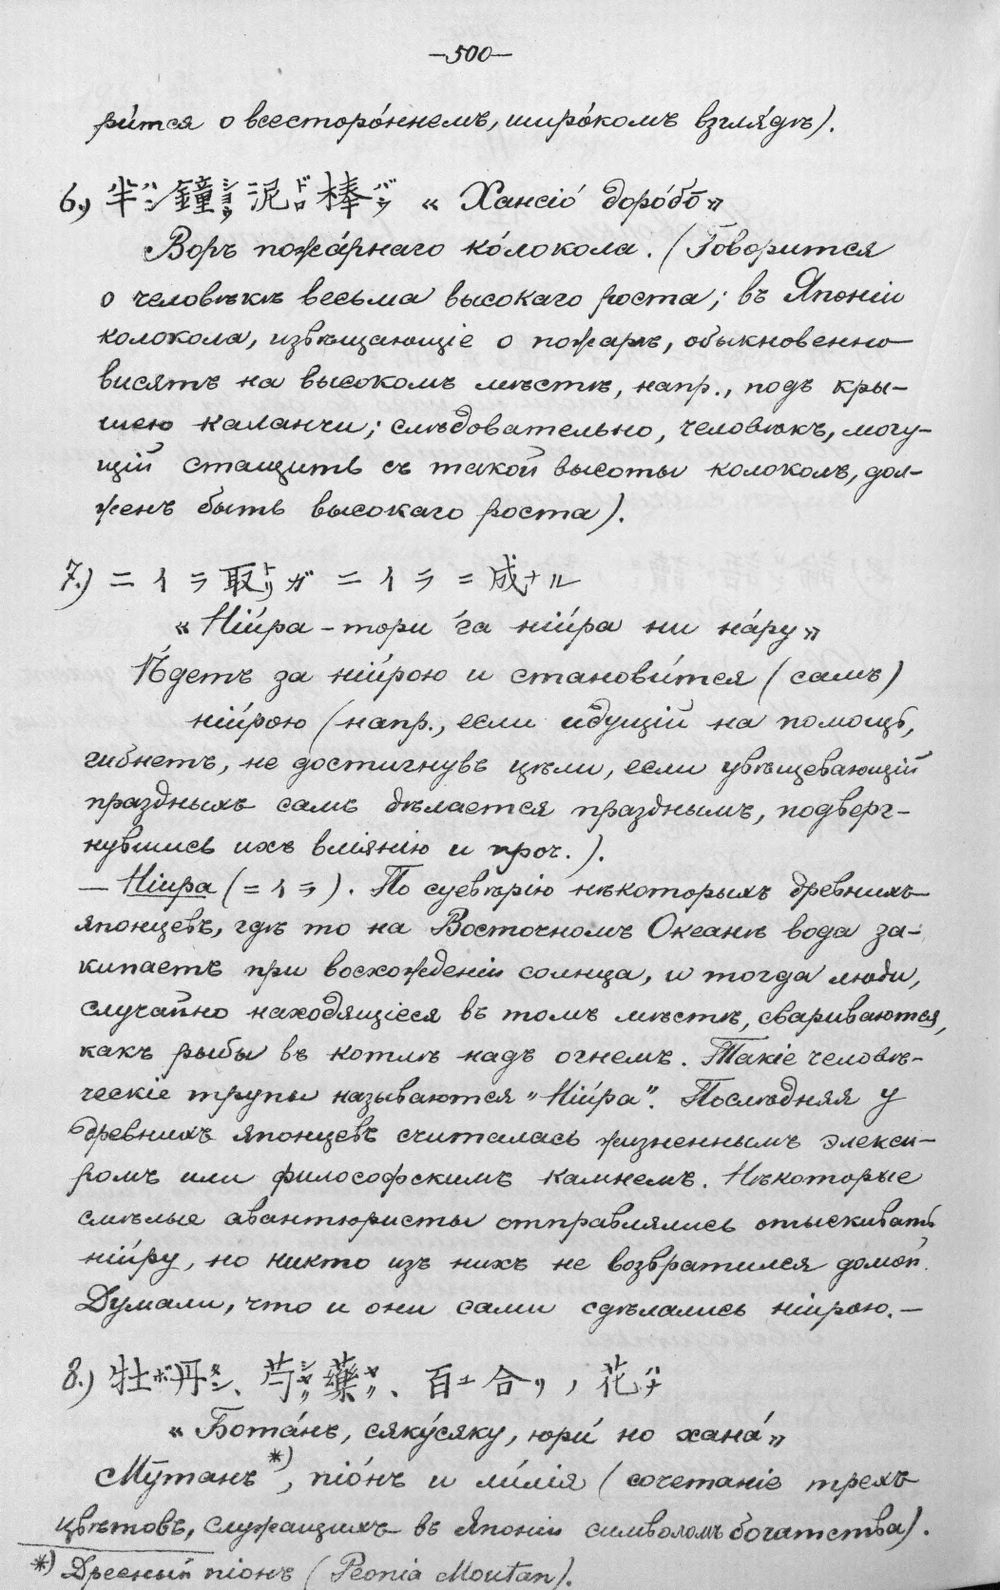 —500—
ри́тся о всесторо́ннемъ, широ́комъ взгля́дѣ).
6.) 半ハン鐘ショウ泥ドロ棒バウ « Хансіо́ доро́бо̄»
Воръ пожа́рнаго ко́локола. (Говорится
о человѣкѣ весьма высокаго роста; въ Японіи
колокола, извѣщающіе о пожарѣ, обыкновенно
висятъ на высокомъ мѣстѣ, напр., подъ кры-
шею каланчи; слѣдовательно, человѣкъ, могу-
щій стащить съ такой высоты колоколъ, дол-
женъ быть высокаго роста).
7.) ニイラ取トリガニイラニ成ナル
« Ніи́ра-тори га ніи́ра ни на́ру»
Йдетъ за ніи́рою и станови́тся (самъ)
ніи́рою (напр., если идущій на помощь,
гибнетъ, не достигнувъ цѣли, если увѣщевающій
праздныхъ самъ дѣлается празднымъ, подверг-
нувшись ихъ вліянію и проч.).
— Ніира (ニイラ). По суевѣрію нѣкоторыхъ древнихъ
японцевъ, гдѣ то на Восточномъ Океанѣ вода за-
кипаетъ при восхожденіи солнца, и тогда люди,
случайно находящіеся въ томъ мѣстѣ, свариваются,
какъ рыбы въ котлѣ надъ огнемъ. Такіе человѣ-
ческіе трупы называются „Ніи́ра". Послѣдняя у
древнихъ японцевъ считалась жизненнымъ элекси-
ромъ или философскимъ камнемъ. Нѣкоторые
смѣлые авантюристы отправлялись отыскивать
ніи́ру, но никто изъ нихъ не возвратился домой.
Думали, что и они сами сдѣлались ніирою.—
8.) 牡ボ丹タン、芍シャク藥ヤク、百ユ合リノ花ハナ
« Бота́нъ, сяку́сяку, юри́ но хана́»
Мӯтанъ *), піо́нъ и ли́лія (сочетаніе трехъ
цвѣтовъ, служащихъ въ Японіи символомъ богатства).
*) Древный піонъ (Peonia Moutan).